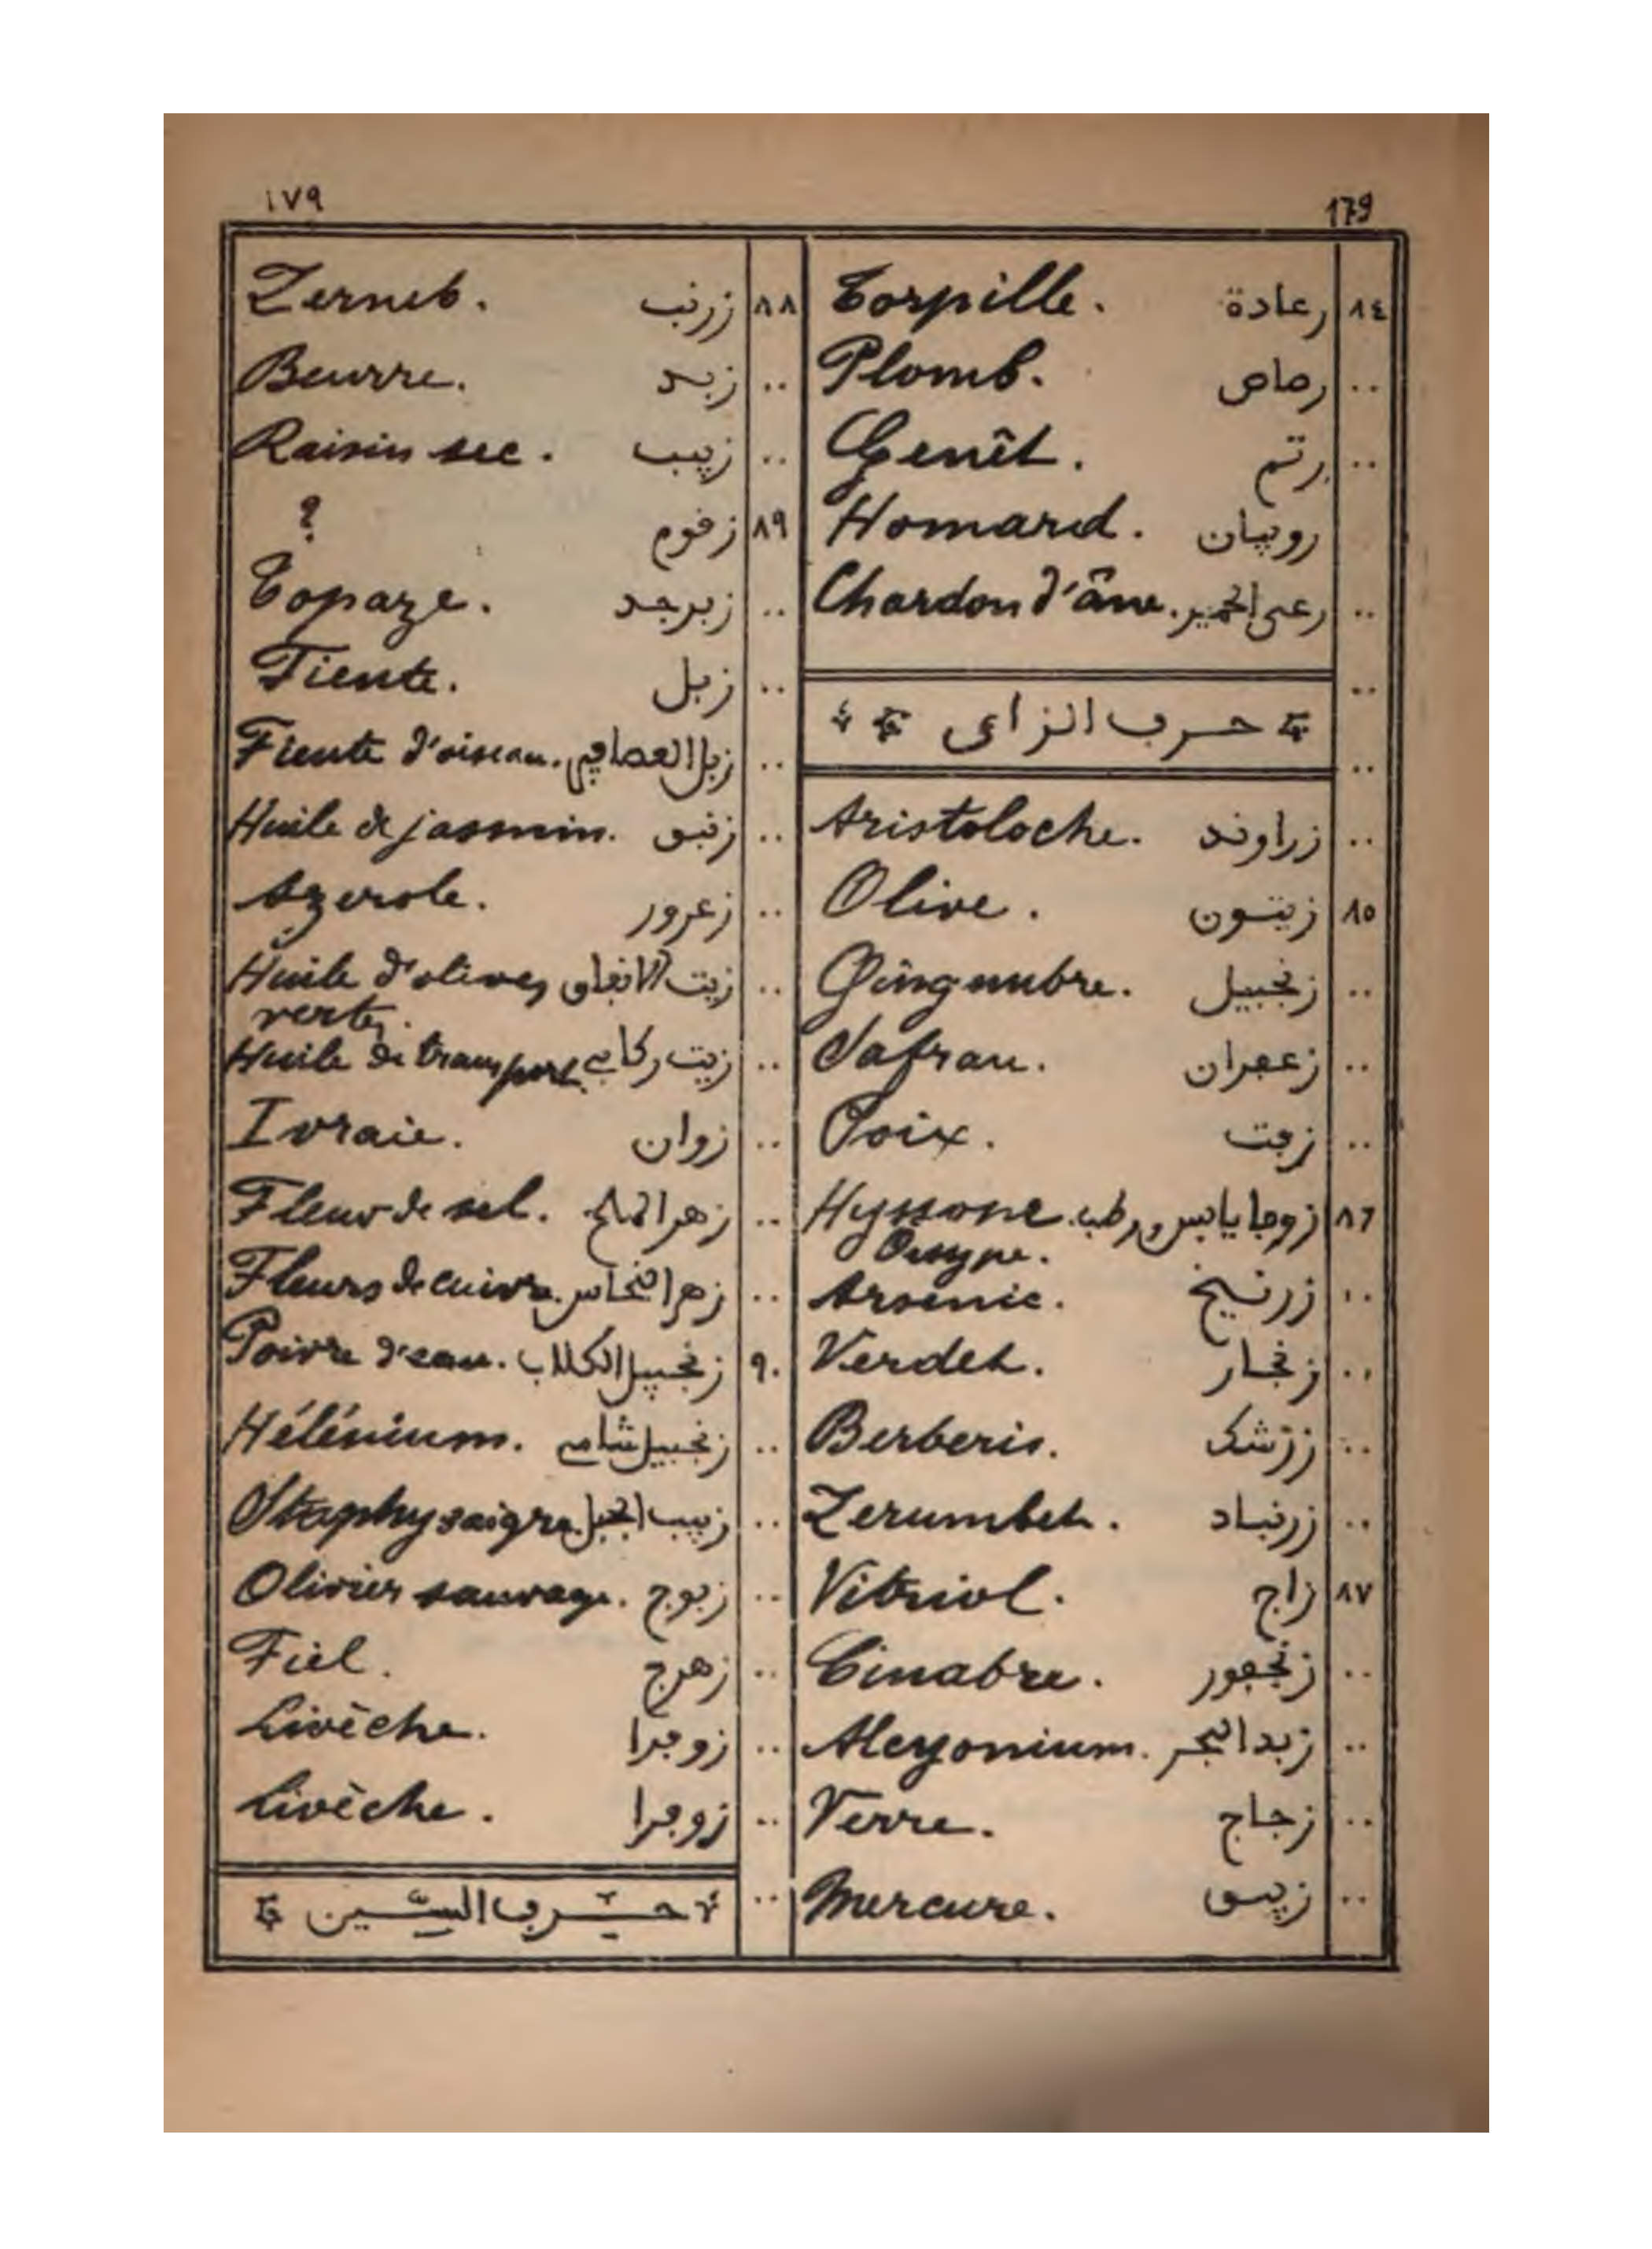 ١٧٩
179
٨٤ رعادة Torpille.
.. رصاص Plomb.
.. رتم Genêt.
روبيان Homard.
.. رعى الحمير Chardon d'âne.
..
حرف الزاى
..
.. زراوند Aristoloche.
٨٥ زيتون Olive.
.. زنجبيل Gingembre.
.. زعفران Safran.
.. زفت Poix.
٨٦ زوفا يابس ورطب Hyssope.
Oesype.
.. زرنيخ Arsenic.
.. زنجار Verdet.
.. زرشك Berberis.
.. زرنباد Zerumbet.
٨٧ زاج Vitriol.
.. زنجفور Cinabre.
.. زبد البحر Alcyonium.
.. زجاج Verre.
.. زيبق Mercure.
٨٨ زرنب Zerneb.
.. زبد Beurre.
.. زبيب Raisin sec.
٨٩ زقوم ?
.. زبرجد Topaze.
.. زبل Fiente.
.. زبل العصافير Fiente d'oiseau.
.. زنبق Huile de jasmin.
.. زعرور Azerole.
.. زيت الانفاق Huile d'olives
vertes.
.. زيت ركابي Huile de transport.
.. زوان Ivraie.
.. زهر الملح Fleur de sel.
.. زهر النحاس Fleurs de cuivre.
٩٠ زنجبيل الكلاب Poivre d'eau.
.. زنجبيل شامي Hélénium.
.. زبيب الجبل Staphysaigre.
.. زبوج Olivier sauvage.
.. زهرج Fiel.
.. زوفرا Livèche.
.. زوفرا Livèche.
.. حرف السين